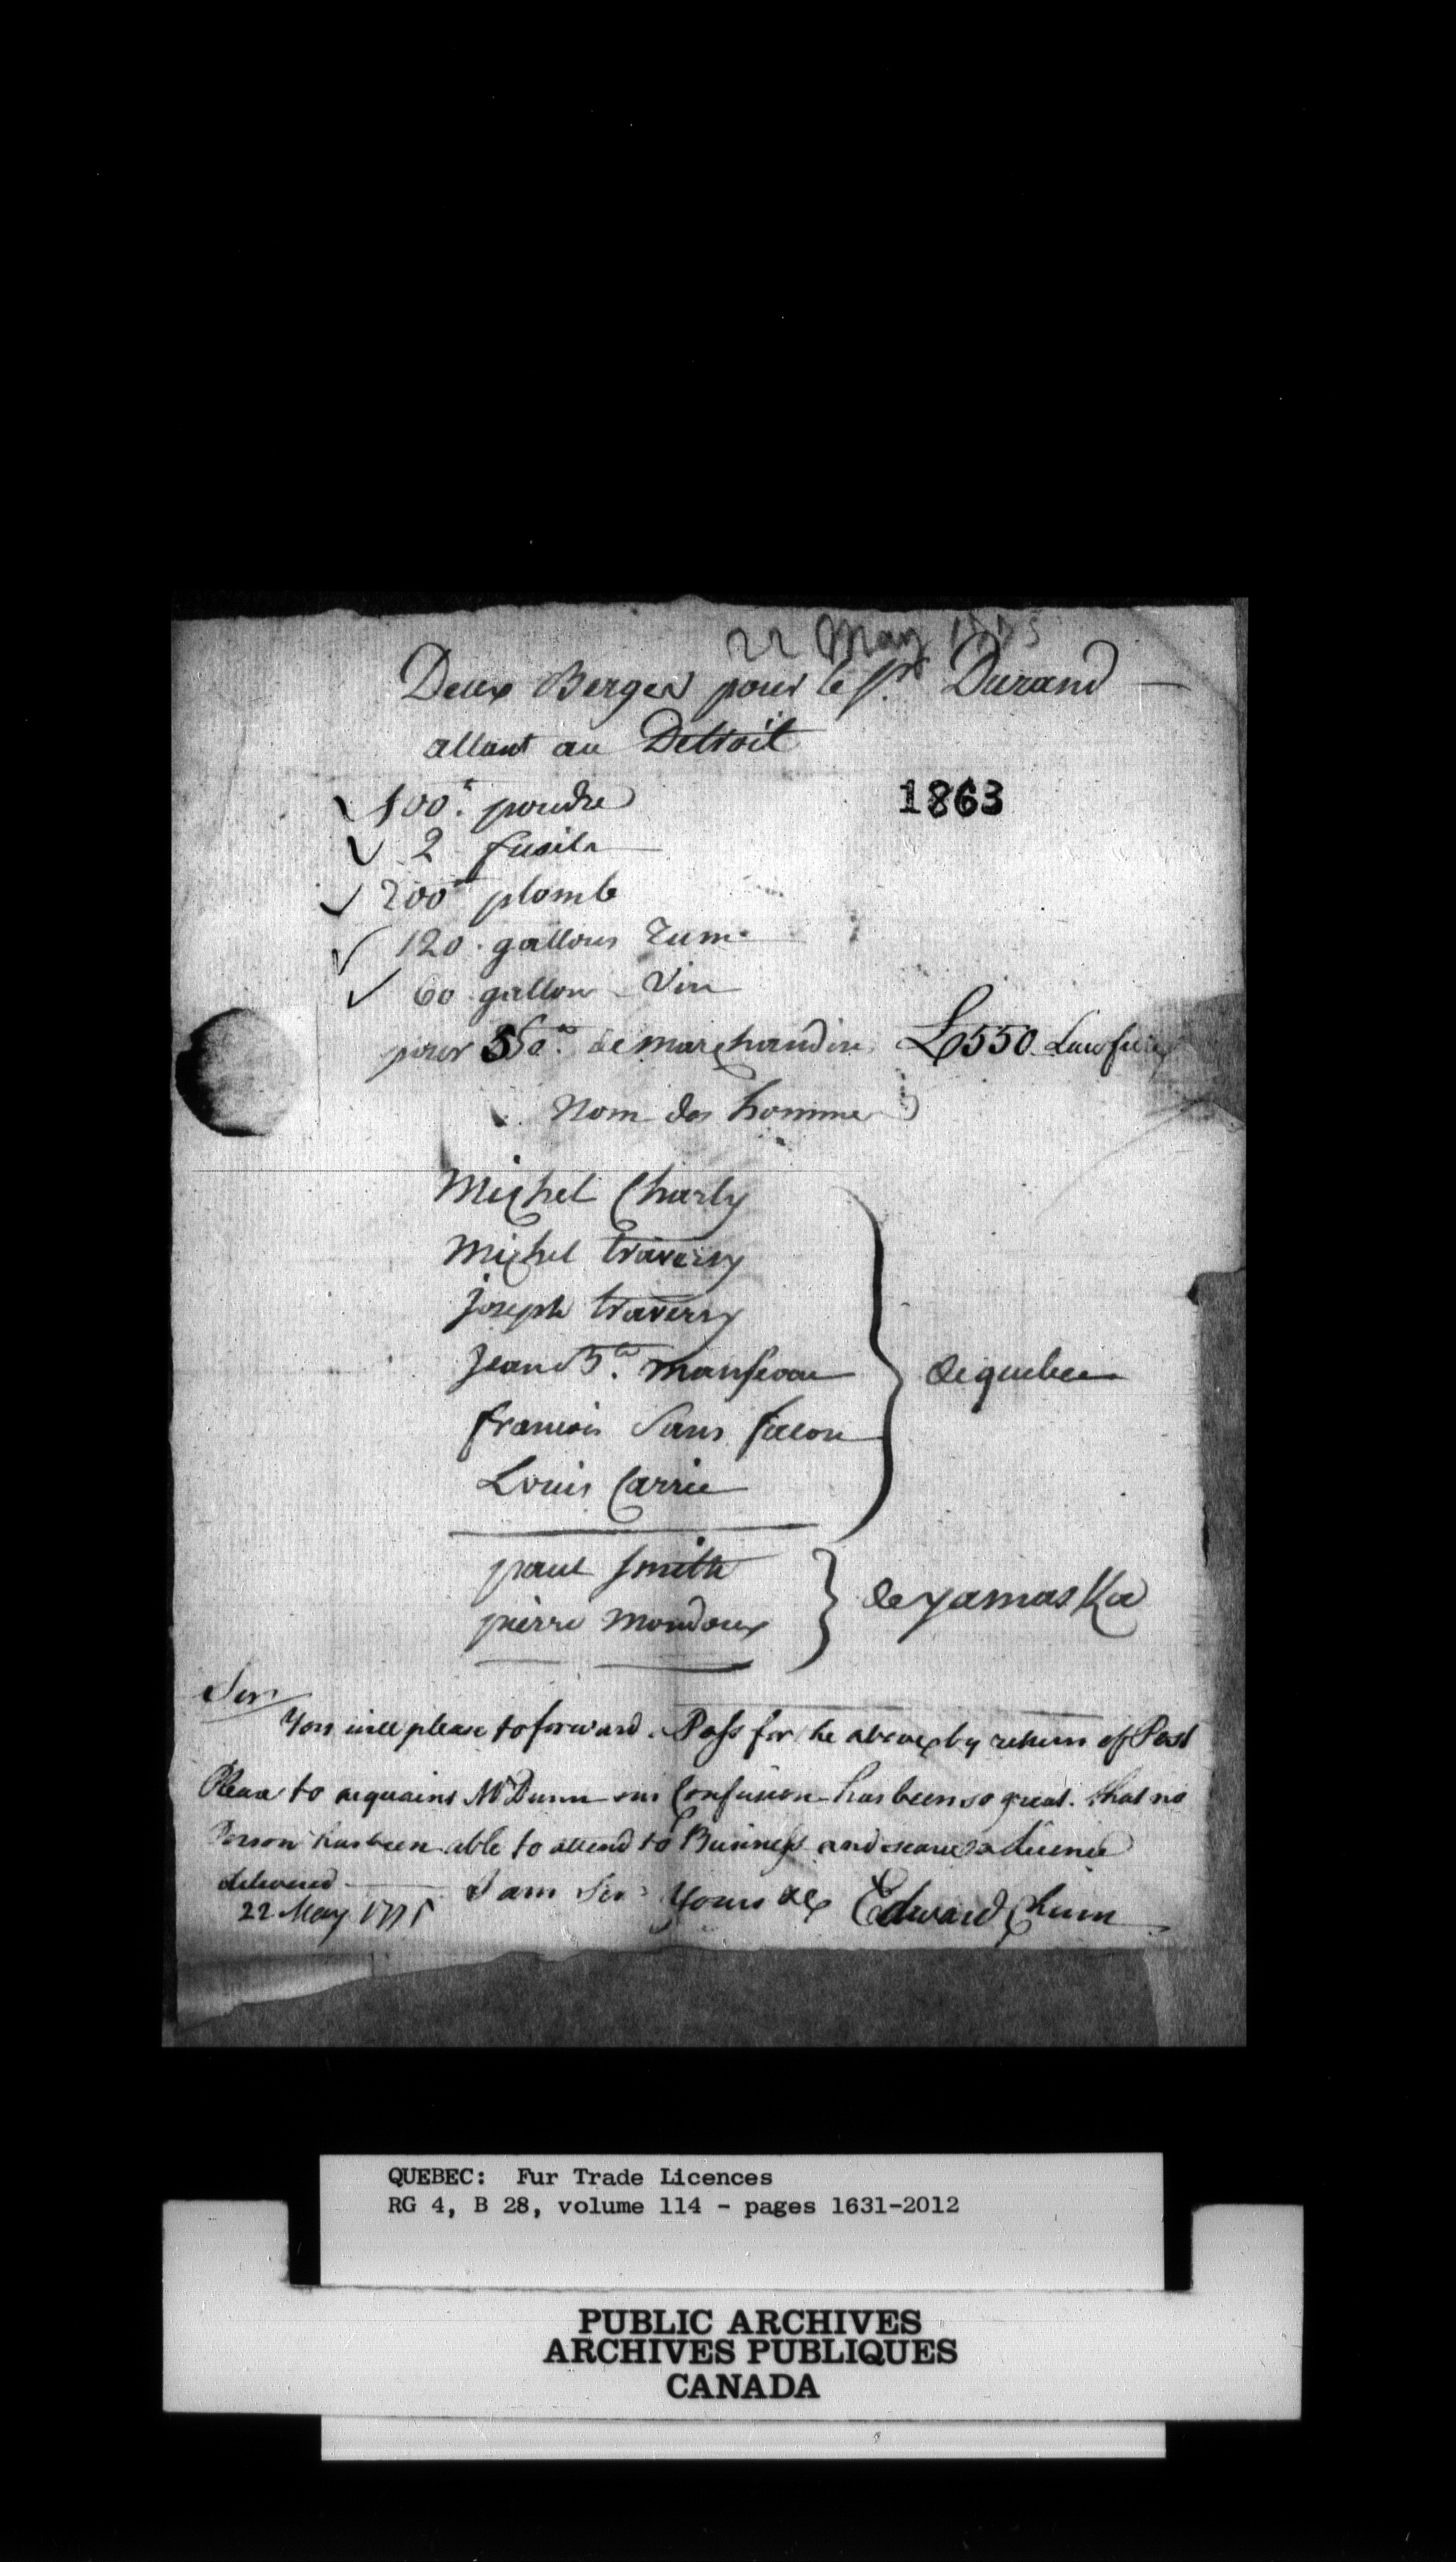 22 May 1775
Deux Berges pour le Sr. Durand
allant au Detroit
1863
100 poudre
2 fusils
200 plomb
120 gallons Rum
60 gallons Vin
pour 550 de marchandise £550 Lawful
Nom des hommes
Michel Charly
Michel traversy
joseph traversy
Jean Bte. manseau
francois Sans facon
Louis Carrie
de quebec
paul smith
pierre Mondoux
de yamaska
Sir
You will please to forward a Pass for the above by return of Post
Please to acquaint Mr Dunn our Confusion has been so great that no
Person has been able to attend to Business and scarce a Licence
delivered I am Sir Yours &c Edward Chinn
22 May 1775
QUEBEC: Fur Trade Licences
RG 4, B 28, volume 114 - pages 1631-2012
PUBLIC ARCHIVES
ARCHIVES PUBLIQUES
CANADA